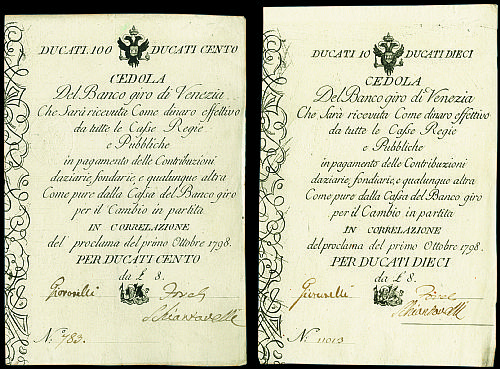 DUCATI. 100 DUCATI CENTO
CEDOLA
Del Banco giro di Venezia
Che Sarà ricevuta Come dinaro effettivo
da tutte le Casse Regie
e Pubbliche
in pagamento delle Contribuzioni
daziarie, fondarie, e qualunque altra
Come pure dalla Cassa del Banco giro
per il Cambio in partita
IN CORRELAZIONE
del proclama del primo Ottobre 1798.
PER DUCATI CENTO
da £ 8.
Giovanelli
N.º 783.
DUCATI 10 DUCATI DIECI
CEDOLA
Del Banco giro di Venezia
Che Sarà ricevuta Come dinaro effettivo
da tutte le Casse Regie
e Pubbliche
in pagamento delle Contribuzioni
daziarie, fondarie, e qualunque altra
Come pure dalla Cassa del Banco giro
per il Cambio in partita
IN CORRELAZIONE
del proclama del primo Ottobre 1798.
PER DUCATI DIECI
da £ 8.
Giovanelli
N.º